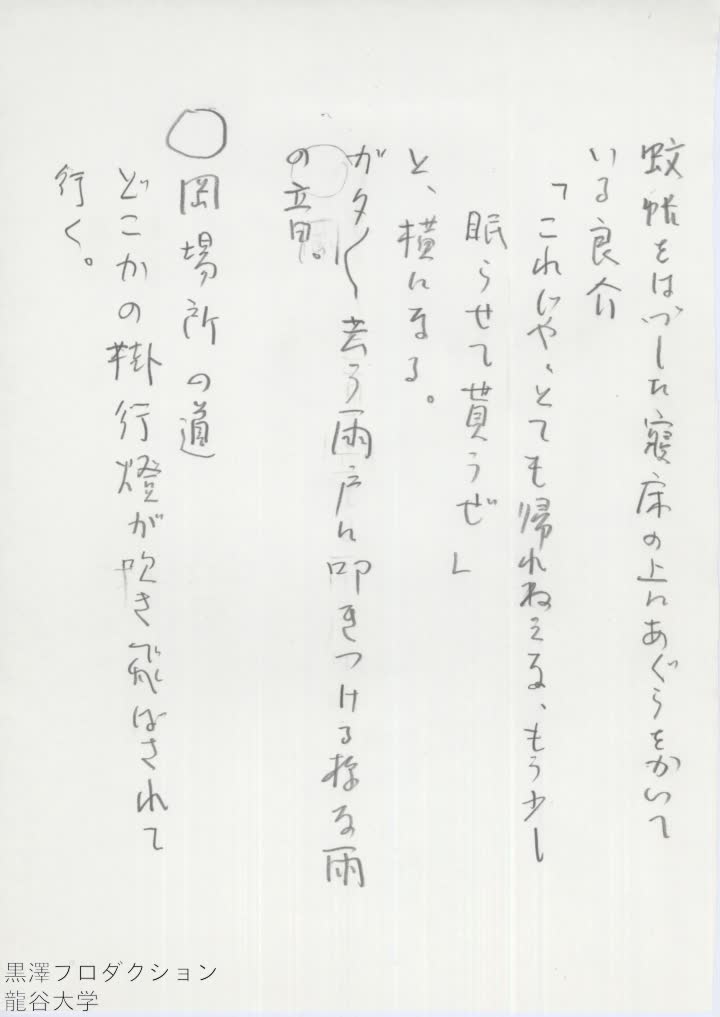 蚊帳をはづした寝床の上にあぐらをかいて
いる良介
「これじや、とても帰れねえな、もう少し
眠らせて貰うぜ」
と、横になる。
ガタ〱言う雨戸に叩きつける様な雨
の音。
○岡場所の道
どこかの掛行燈が吹き飛ばされて
行く。
黒澤プロダクション
龍谷大学